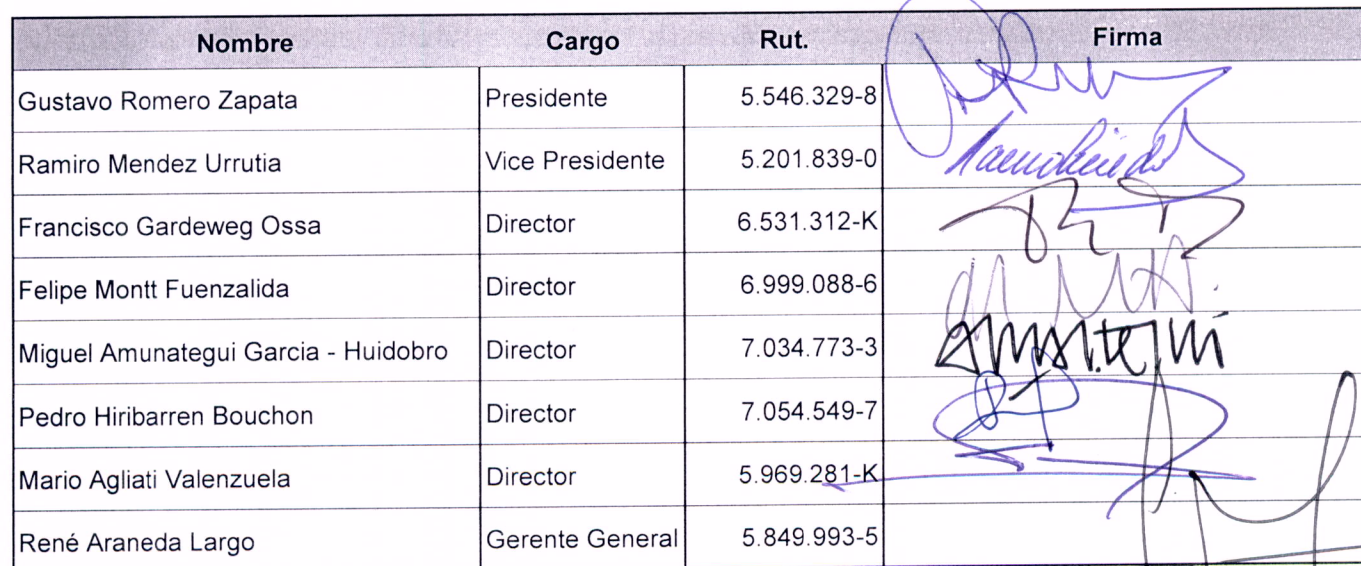 Nombre Cargo Rut. Firma
Gustavo Romero Zapata Presidente 5.546.329-8
Ramiro Mendez Urrutia Vice Presidente 5.201.839-0
Francisco Gardeweg Ossa Director 6.531.312-K
Felipe Montt Fuenzalida Director 6.999.088-6
Miguel Amunategui Garcia - Huidobro Director 7.034.773-3
Pedro Hiribarren Bouchon Director 7.054.549-7
Mario Agliati Valenzuela Director 5.969.281-K
René Araneda Largo Gerente General 5.849.993-5